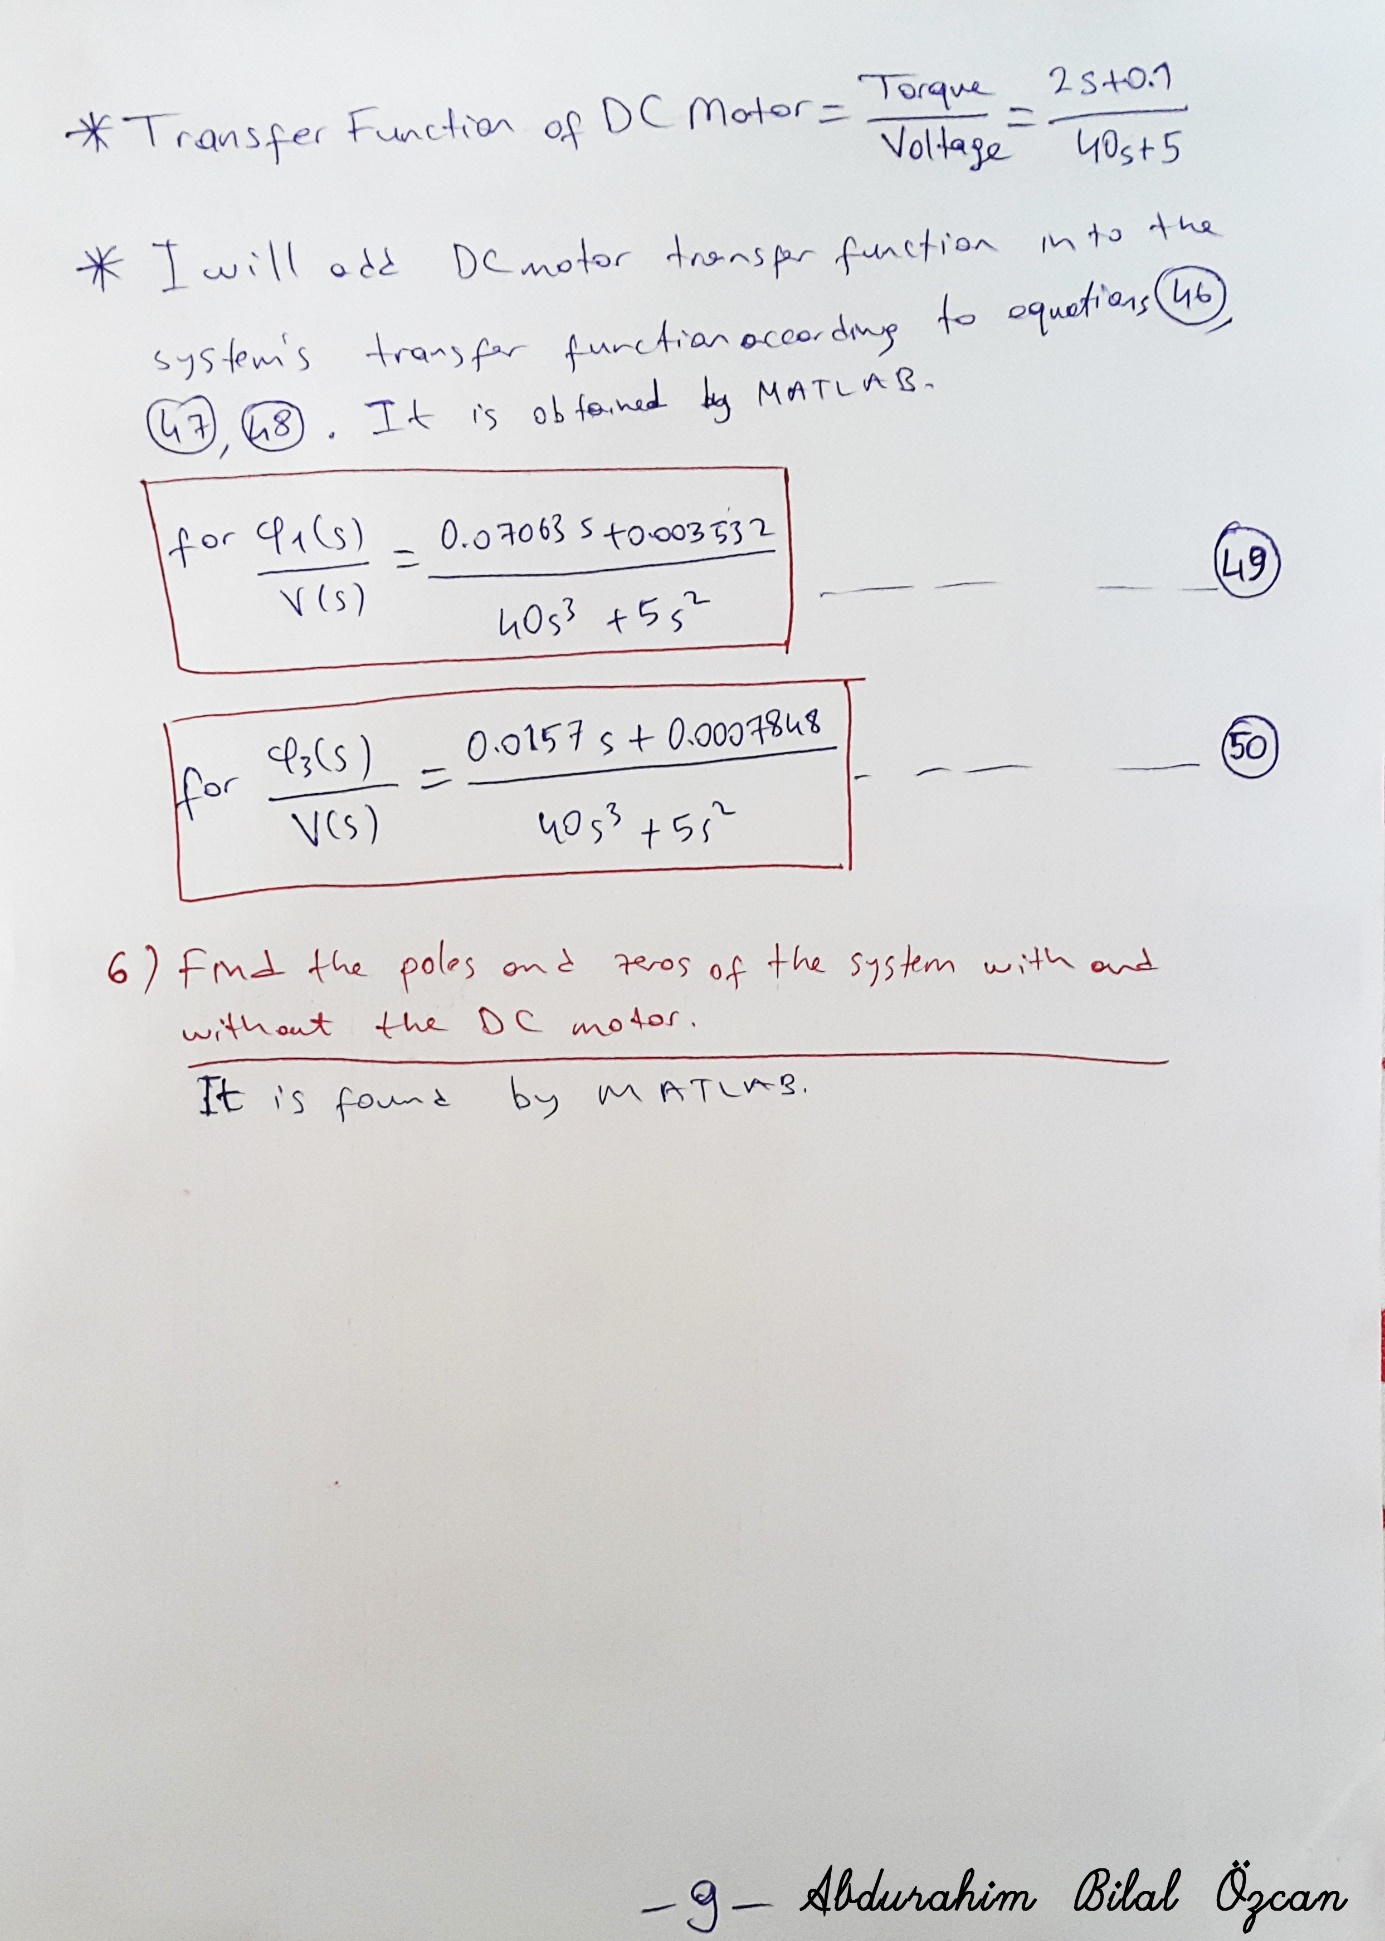 * Transfer Function of DC Motor = Torque / Voltage = 2s+0.1 / 40s+5
* I will add DC motor transfer function into the
system's transfer function according to equations (46),
(47), (48). It is obtained by MATLAB.
for φ1(s) / V(s) = 0.07063 s + 0.003532 / 40s³ + 5s² (49)
for φ3(s) / V(s) = 0.0157 s + 0.0007848 / 40s³ + 5s² (50)
6) Find the poles and zeros of the system with and
without the DC motor.
It is found by MATLAB.
-9- Abdurahim Bilal Özcan